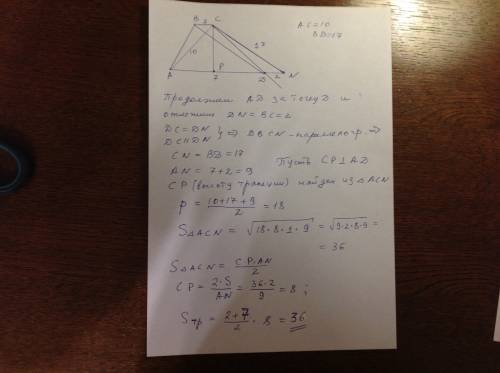 B 2 C
AC=10
BD=17
10
17
A P D 2 N
7
Продолжим AD за точку D и
отложим DN = BC = 2
BC = DN
BC || DN } ⇒ DBCN - параллелогр. ⇒
CN = BD = 17
Пусть CP ⊥ AD
AN = 7+2 = 9
CP (высоту трапеции) найдем из △ACN
p = (10+17+9)/2 = 18
S△ACN = √(18·8·1·9) = √(9·2·8·9) =
= 36
S△ACN = CP·AN/2
CP = 2·S/AN = 36·2/9 = 8 ;
Sтр = (2+7)/2 · 8 = 36